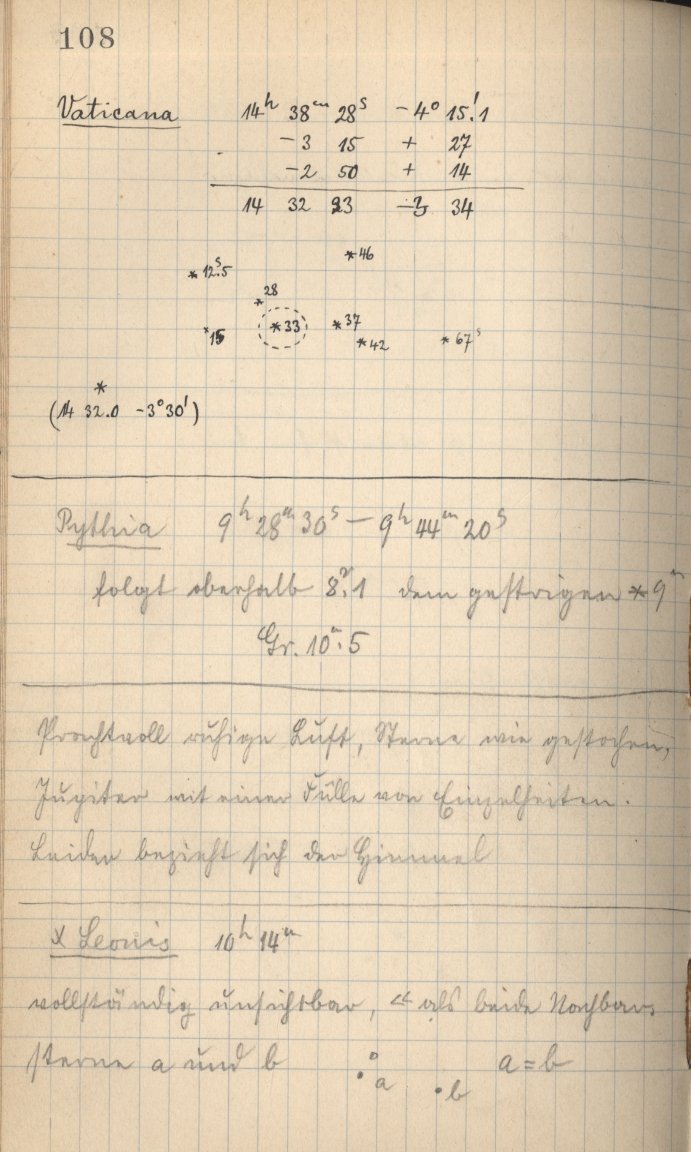 108
Vaticana 14h 38m 28s −4° 15!1
−3 15 + 27
−2 50 + 14
14 32 23 −3 34
*46
*12s.5
28
*
*15 *33 *37
*42 *67s
*
(14 32.0 −3°30')
Pythia 9h 28m 30s − 9h 44m 20s
folgt oberhalb 8m.1 dem gestrigen *9m
Gr. 10m.5
Prachtvoll ruhige Luft, Sterne wie gestochen,
Jupiter mit einer Fülle von Einzelheiten.
Leider bezieht sich der Himmel
X Leonis 10h 14m
vollständig unsichtbar, << als beide Nachbar-
sterne a und b a b a = b